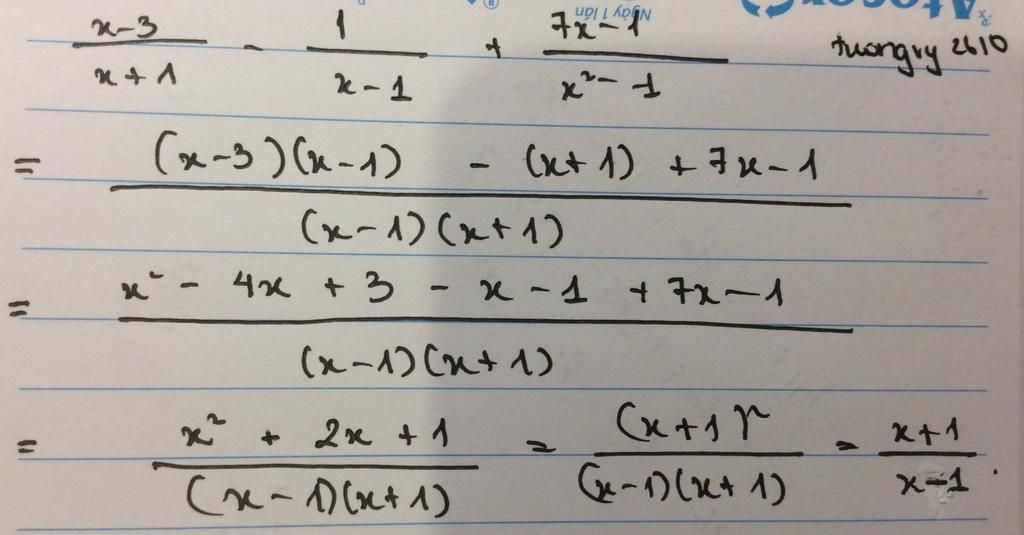 Atocor
Ngày 1 lần
x-3 / x+1 - 1 / x-1 + 7x-1 / x²-1
tuongvy 2610
= (x-3)(x-1) - (x+1) + 7x-1 / (x-1)(x+1)
= x² - 4x + 3 - x - 1 + 7x-1 / (x-1)(x+1)
= x² + 2x + 1 / (x-1)(x+1) = (x+1)² / (x-1)(x+1) = x+1 / x-1 .